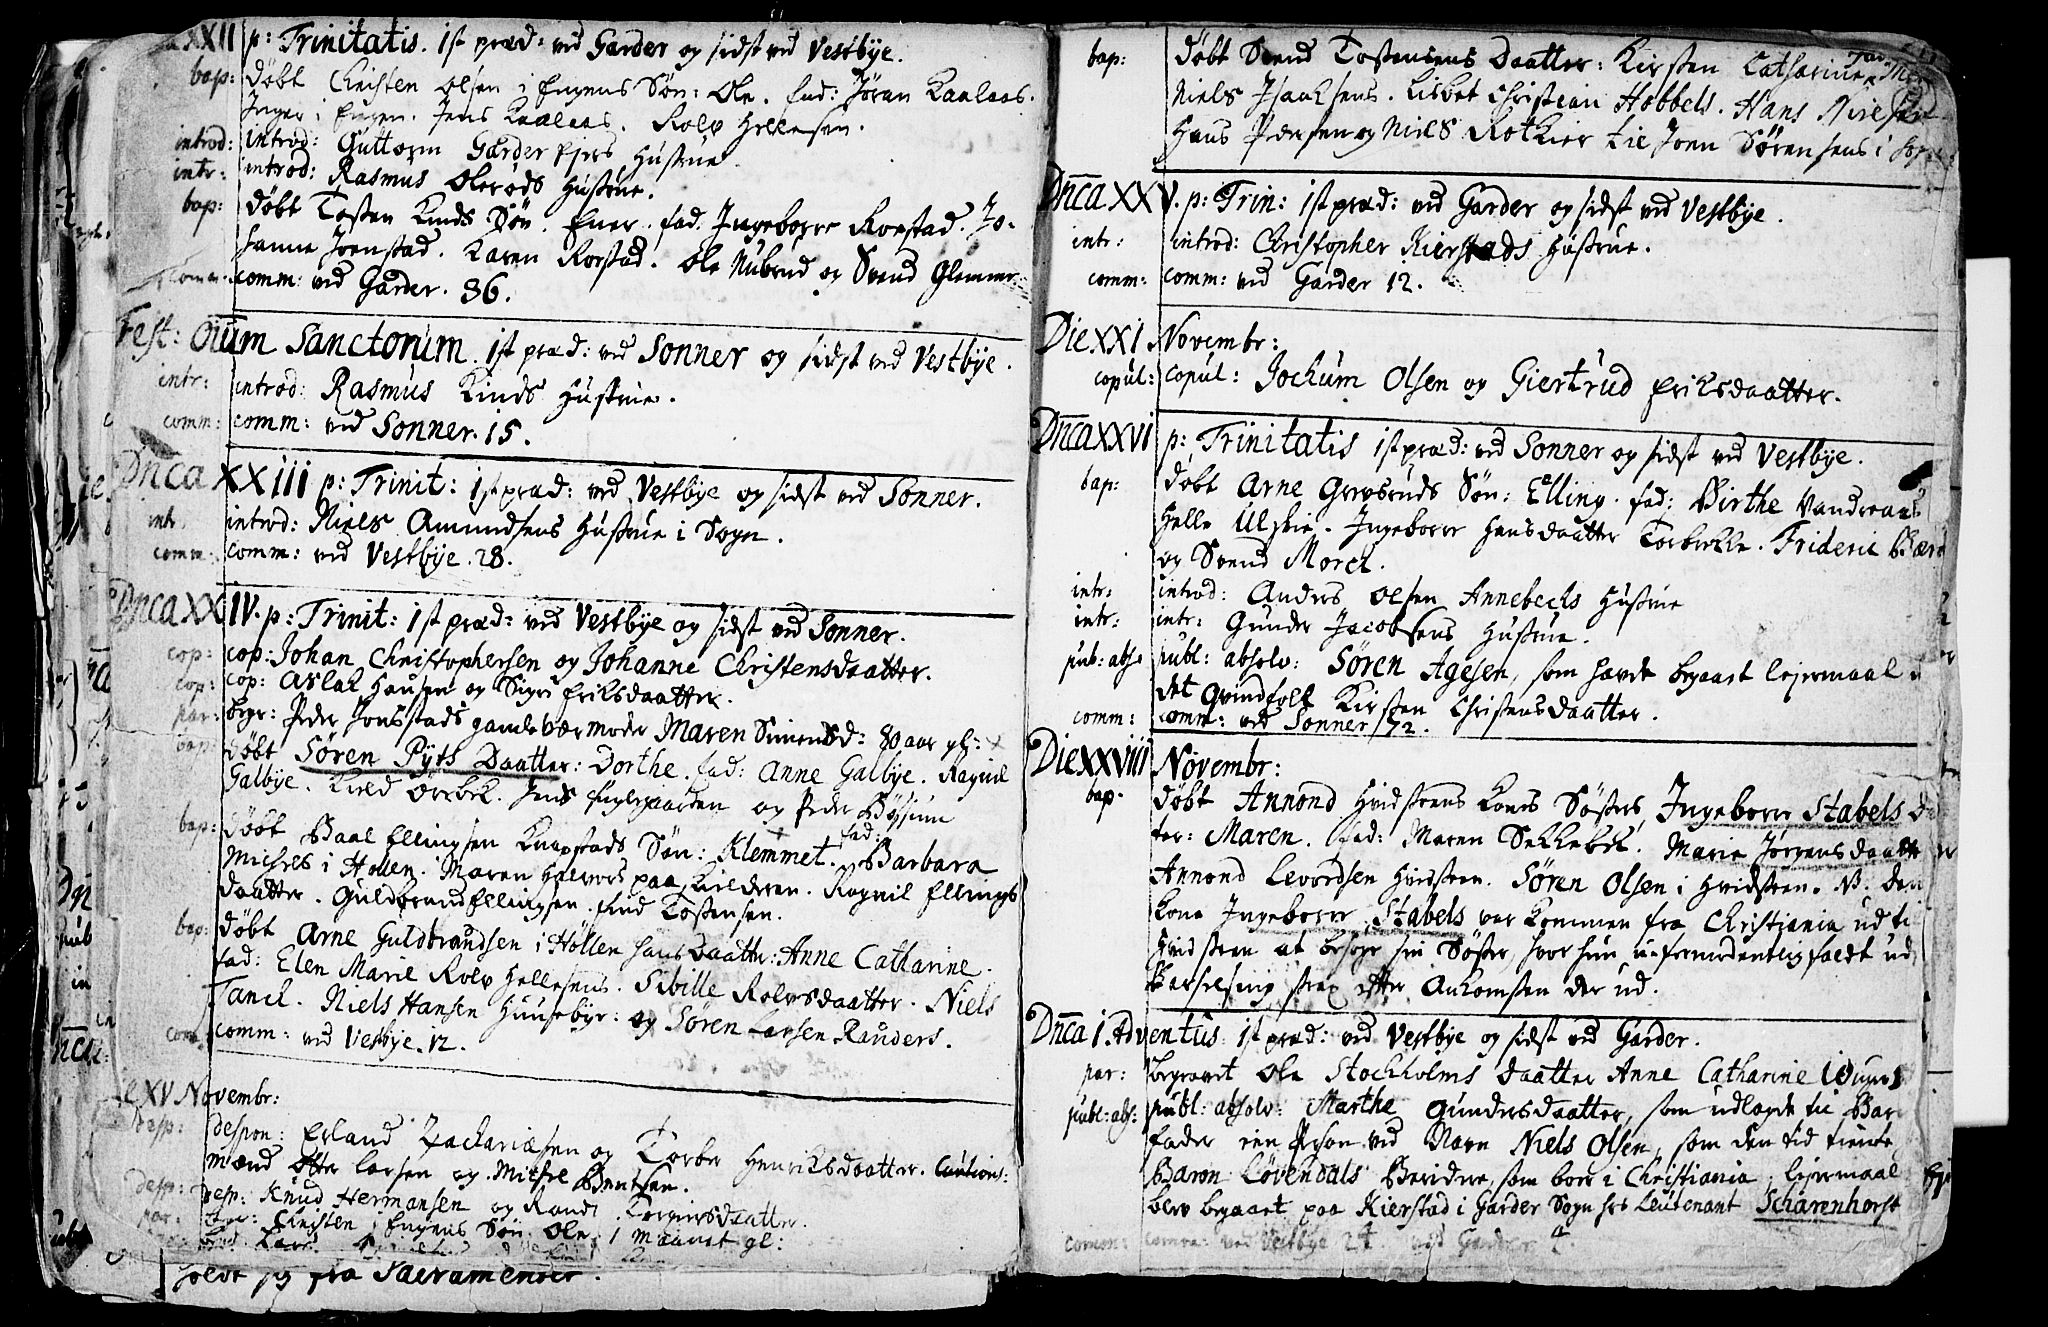 XXII p: Trinitatis. 1st præd: ved Garder og sidst ved Vestbÿe.
bap: døbt Christen Olsen i Engens Søn: Ole. fad: Jøran Kaalaas.
Inger i Engen. Jens Kaalaas. Rolv Hellesen.
introd: introd: Guttorm Garder Ejers Hustrue.
intr: introd: Rasmus Olerøds Hustrue.
bap: døbt Tosten Kinds Søn. Ener. fad. Ingeborre Rorstad. Jo-
hanne Joenstad. Karen Rorstad. Ole Nubrud og Svend Glemmer:
comm: comm: ved Garder. 36.
Fest: Oium Sanctorum. 1st præd: ved Sonner og sidst ved Vestbÿe.
intr: introd: Rasmus Kinds Hustrue.
comm: comm: ved Sonner. 15.
Dnca XXIII p: Trinit: 1st præd: ved Vestbÿe og sidst ved Sonner.
intr. introd: Niels Amundsens Hustrue i Sogn.
comm. comm: ved Vestbÿe. 28.
Dnca XXIV. p: Trinit: 1st præd: ved Vestbÿe og sidst ved Sonner.
cop: cop: Johan Christophersen og Johanne Christensdaatter.
cop: cop: Aslak Hansen og Signe Eriksdaatter.
par: begr: Peder Jonsstads gamle Værmoder Maren Simensd: 80 aar gl:
bap: døbt Søren Pÿts Daatter: Dorthe. fad: Anne Galbÿe. Ragnil
Galbÿe. Kield Ørebek. Jens Fuglegaarden og Peder Bÿssium
bap: døbt Baal Ellingsen Knapstads Søn: Klemmet. fad: Barbara
Michels i Hollen. Maren Halvors paa Kielderen. Ragnil Ellings
daatter. Guldbrand Ellingsen. find Tostensen.
bap: døbt Arne Guldbrandsen i Hollen hans Daatter: Anne Catharine.
fad: Elen Marie Rolv Hellesens. Sibille Rolvsdaatter. Niels
Tanck. Niels Hansen Huusebÿe: og Søren Larsen Randers.
com: comm: ved Vestbÿe. 12.
XV Novembr:
desp: despon: Erland Zachariæsen og Torber Henriksdaatter. Cautions:
mænd Otter Larsen og Michel Bentsen.
desp: desp: Knud Hermansen og Randi Torgersdaatter.
par: Christen i Engens Søn Ole. 1 maanet gl:
holdt sig fra Sacramenter.
bap: døbt Svend Tostensens Daatter: Kirsten Catharine.
Niels Isachsens. Lisbet Christian Hobbels. Hans
Hans Pedersen og Niels Rotkier til Joen Sørensens i
Dnca XXV. p: Trin: 1st præd: ved Garder og sidst ved Vestbÿe.
intr: introd: Christopher Kierstads Hustrue.
comm: comm: ved Garder 12.
Die XXI Novembr:
copul: copul: Jochum Olsen og Giertrud Eriksdaatter.
Dnca XXVI p: Trinitatis 1st præd: ved Sonner og sidst ved Vestbÿe.
bap: døbt Arne Grevsruds Søn: Elling. fad: Birthe
Helle Ulskie. Ingeborr Hansdaatter Torbiølle. Frideric
og Svend Morck.
intr: introd: Anders Olsen Annebechs Hustrue
intr: intr: Gunder Jacobsens Hustrue.
pub: abs: publ: absolv: Søren Agesen, som havde begaaet lejermaal
det Qvindfolk Kirsten Christensdaatter.
comm: comm: ved Sonner 72.
Die XXVIII Novembr:
bap. døbt Annond Hvidsteens Kones Søsters, Ingeborr Stabels
ter: Maren. fad: Maren Sekkebek. Marie Jørgensdaatter
Annond Levordsen Hvidsteen. Søren Olsen i Hvidsteen. NB. den
Kone Ingeborr Stabels var kommen fra Christiania ud til
Hvidsteen at besøge sin Søster, hvor hun uformodentlig faldt ud
Barselseng strax efter Ankomsten der ud.
Dnca 1. Adventus 1st præd: ved Vestbÿe og sidst ved Garder.
par: begravet Ole Stockholms Daatter Anne Catharine
publ: abs: publ: absolv: Marthe Gundersdaatter, som udlagde til Bar
fader een Person ved Navn Niels Olsen, som den tid tiente
Baron Løvendals Beridere, som boer i Christiania, lejermaal
blev begaaet paa Kierstad i Garder Sogn hos Leutenant Scharenhorst
comm: comm: ved Vestbÿe 24. ved Garder